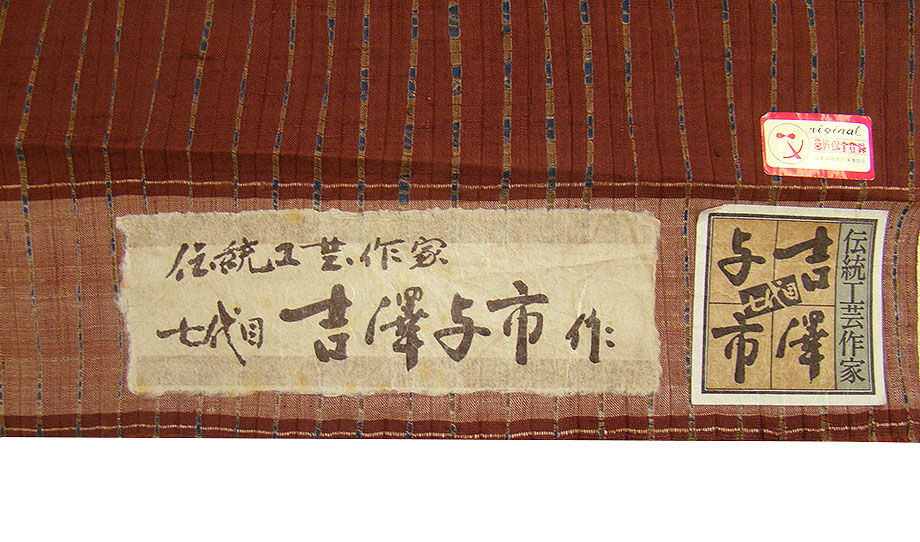 伝統工芸作家
七代目 吉澤与市 作
伝統工芸作家
吉澤
七代目
与市
riginal